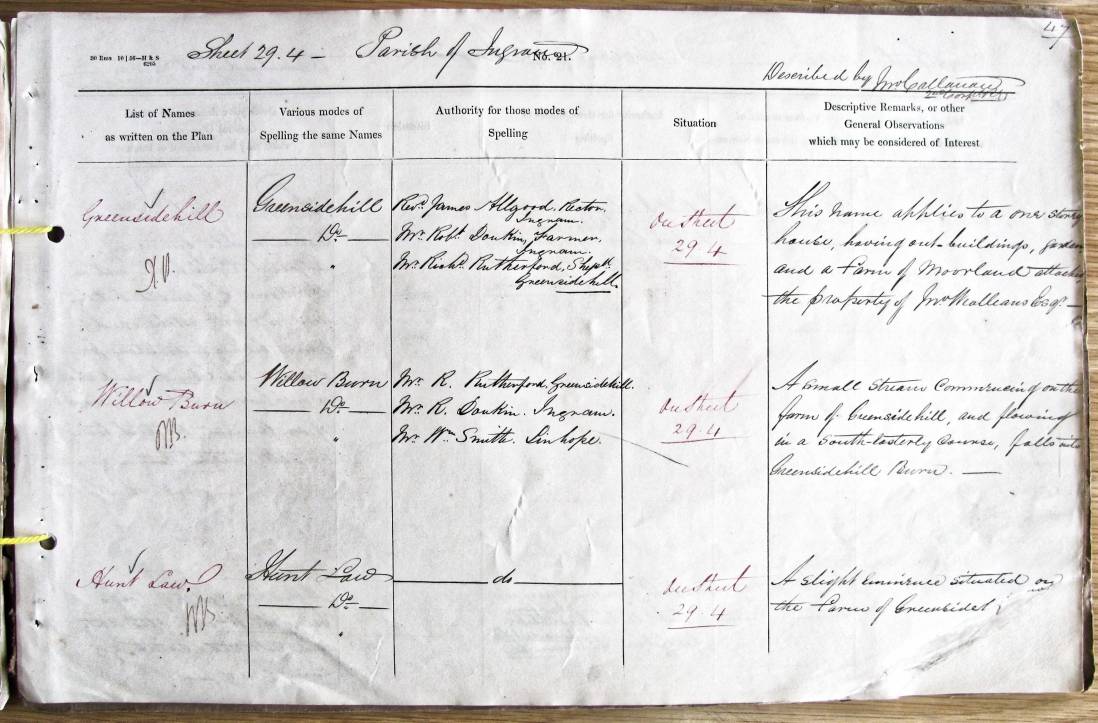 47
30 Rms 10|56—H & S
6205
Sheet 29.4 - Parish of Ingram
No. 21.
Described by Jno Callanan
2nd Corpl RE
List of Names
as written on the Plan
Various modes of
Spelling the same Names
Authority for those modes of
Spelling
Situation
Descriptive Remarks, or other
General Observations
which may be considered of Interest
Greensidehill
Greensidehill
Do
"
Revd. James Allgood, Rector,
Ingram.
Mr. Robt. Donkin, Farmer,
Ingram.
Mr. Richd. Rutherford, Shepd.
Greensidehill.
On Sheet
29.4
This name applies to a one storey
house, having out-buildings, garden
and a Farm of Moorland attached
the property of Jno Esqr. —
Willow Burn
Willow Burn
Do
"
Mr. R. Rutherford, Greensidehill.
Mr. R. Donkin. Ingram.
Mr. Wm. Smith. Linhope.
On Sheet
29.4
A small stream Commencing on the
farm of Greensidehill, and flowing
in a South-Easterly Course, falls into
Greensidehill Burn. —
Hunt Law
Hunt Law
Do
"
do
On Sheet
29.4
A slight eminence situated on
the Farm of